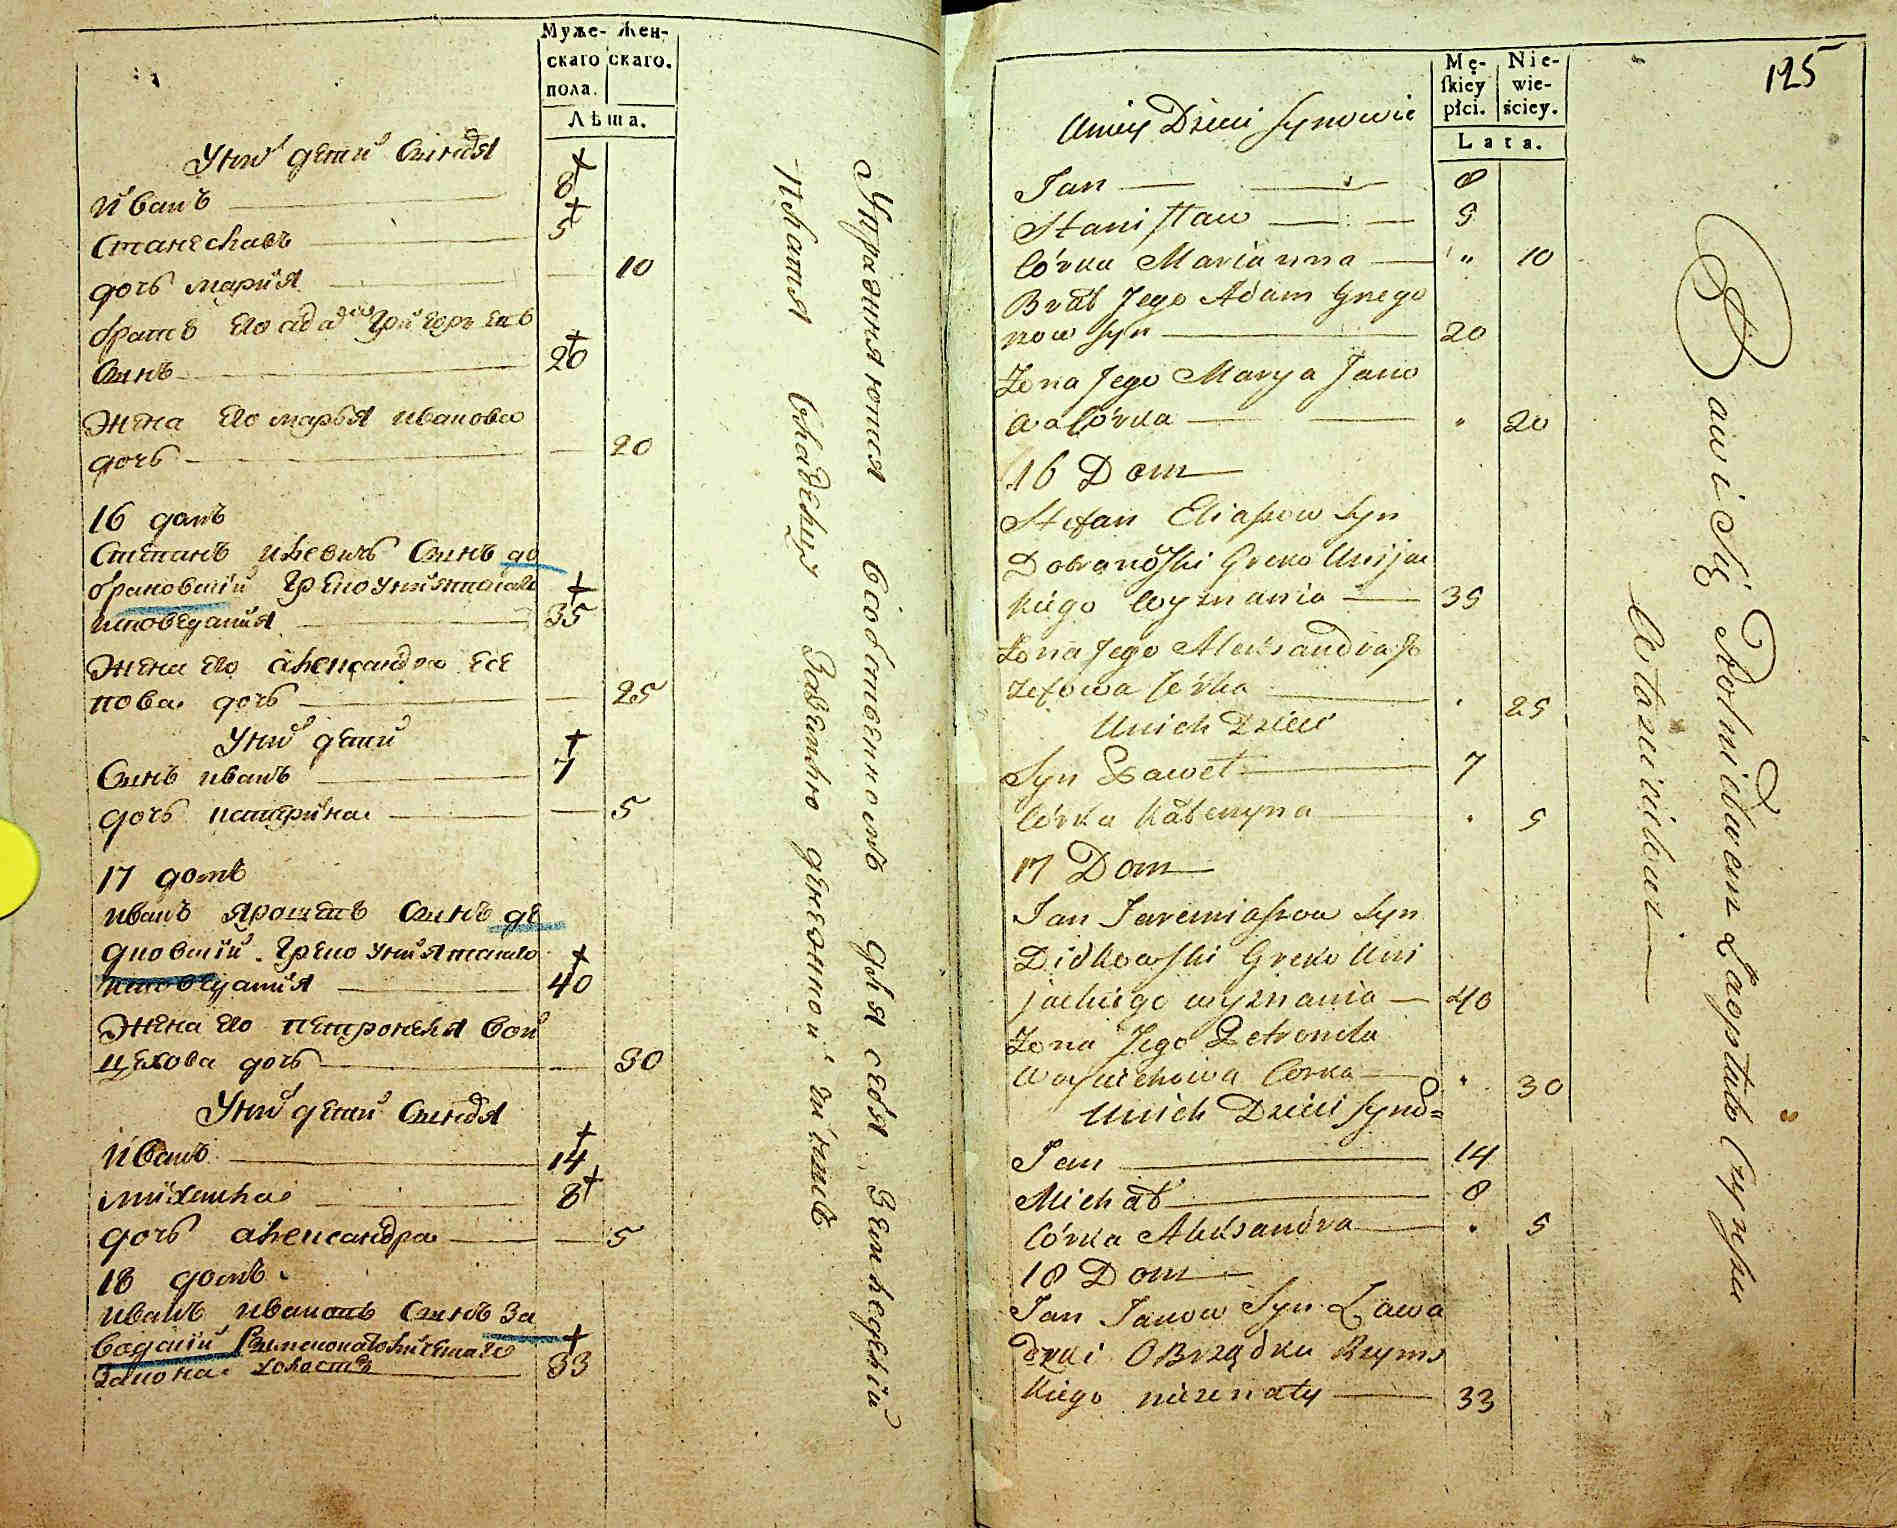 Муже-
скаго
пола.
Жен-
скаго.
Лѣта.
У нихъ дети синовя
Иванъ 8
Станеславъ 5
дочь мария 10
братъ его адамъ Григоръевъ
синъ 20
Жена его марья иванова
дочь 20
16 домъ
Степанъ илевичъ синъ до
брановский Грекоуниятскаго
исповедания 35
Жена его александра есе
пова дочь 25
У нихъ дети
Синъ иванъ 7
дочь катерина 5
17 домъ
иванъ яромевъ синъ де
дковский Греко униятскаго
исповедания 40
Жена его петронеля вой
цехова дочь 30
У нихъ дети синовя
Иванъ 14
михайла 8
дочь александра 5
18 домъ
иванъ ивановъ синъ за
вадский Римскокатолическаго
закона холостъ 33
Упражняются в собственность для себя земледелии
платя владельцу денежной чиншъ
125
Mę-
skiey
płci.
Nie-
wie-
ściey.
Lata.
U niey Dzieci Synowie
Jan 8
Stanisław 5
Córka Marianna " 10
Brat Jego Adam Grego
row Syn 20
Żona Jego Marya Jano
wa Córka " 20
16 Dom
Stefan Eliaszow Syn
Dobranoski Greko Unijac
kiego wyznania 35
Żona Jego Aleksandra Jó
zefowa Córka " 25
U nich Dzieci
Syn Paweł 7
Córka Katerzyna " 5
17 Dom
Jan Jaremiaszow Syn
Didkowski Greko Uni
jackiego wyznania 40
Żona Jego Petronela
Woyciechowa Corka " 30
U nich Dzieci Syno=
Jan 14
Michał 8
Córka Aleksandra " 5
18 Dom
Jan Janow Syn Zawa
dzki Obrządku Rzyms
kiego nieżenaty 33
Bawi Się Rolnictwem Zaopłatą Czynszu